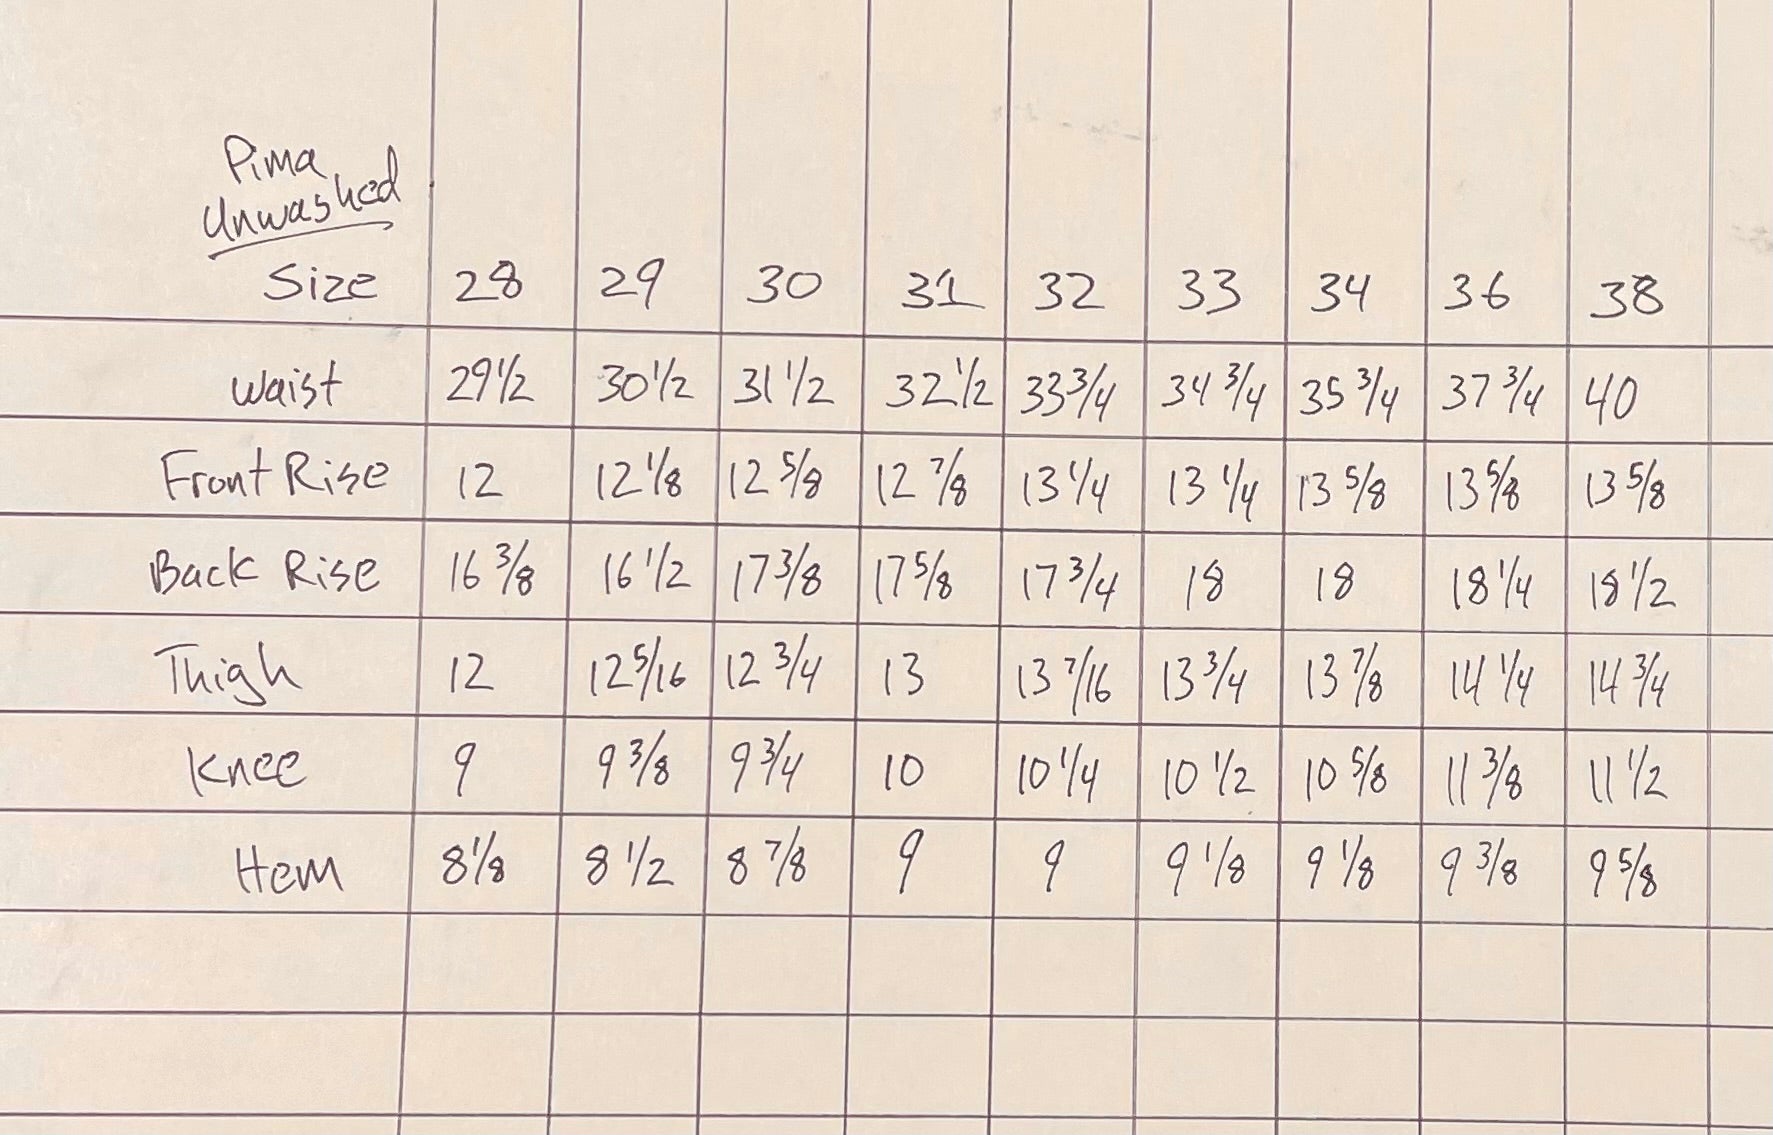 Pima
Unwashed
Size 28 29 30 31 32 33 34 36 38
Waist 29 1/2 30 1/2 31 1/2 32 1/2 33 3/4 34 3/4 35 3/4 37 3/4 40
Front Rise 12 12 1/8 12 5/8 12 7/8 13 1/4 13 1/4 13 5/8 13 5/8 13 5/8
Back Rise 16 3/8 16 1/2 17 3/8 17 5/8 17 3/4 18 18 18 1/4 18 1/2
Thigh 12 12 5/16 12 3/4 13 13 7/16 13 3/4 13 7/8 14 1/4 14 3/4
Knee 9 9 3/8 9 3/4 10 10 1/4 10 1/2 10 5/8 11 3/8 11 1/2
Hem 8 1/8 8 1/2 8 7/8 9 9 9 1/8 9 1/8 9 3/8 9 5/8